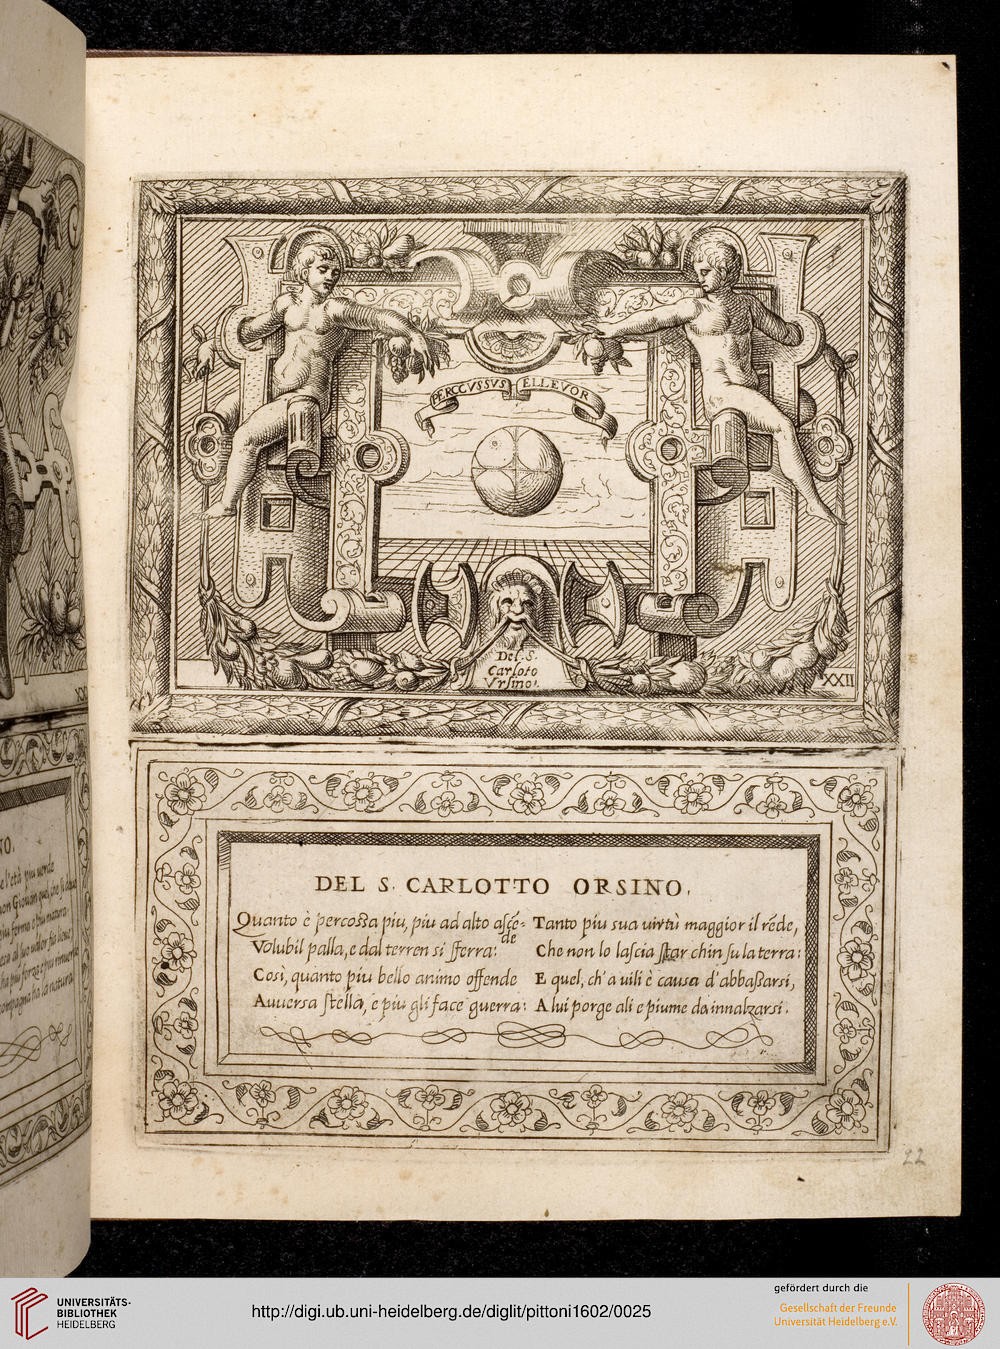 PERCCVSSVS ELLEVOR
Del. S.
Carloto
Vrsino.
XXII
DEL S. CARLOTTO ORSINO.
Quanto è percossa piu, piu ad alto ascẽ-
de
Volubil palla, e dal terren si sferra:
Così, quanto piu bello animo offende
Auuersa stella, e piu gli face guerra:
Tanto piu sua uirtù maggior il rẽde,
Che non lo lascia star chin su la terra:
E quel, ch'a uili è causa d'abbassarsi,
A lui porge ali e piume da innalzarsi.
22
UNIVERSITÄTS-
BIBLIOTHEK
HEIDELBERG
http://digi.ub.uni-heidelberg.de/diglit/pittoni1602/0025
gefördert durch die
Gesellschaft der Freunde
Universität Heidelberg e.V.